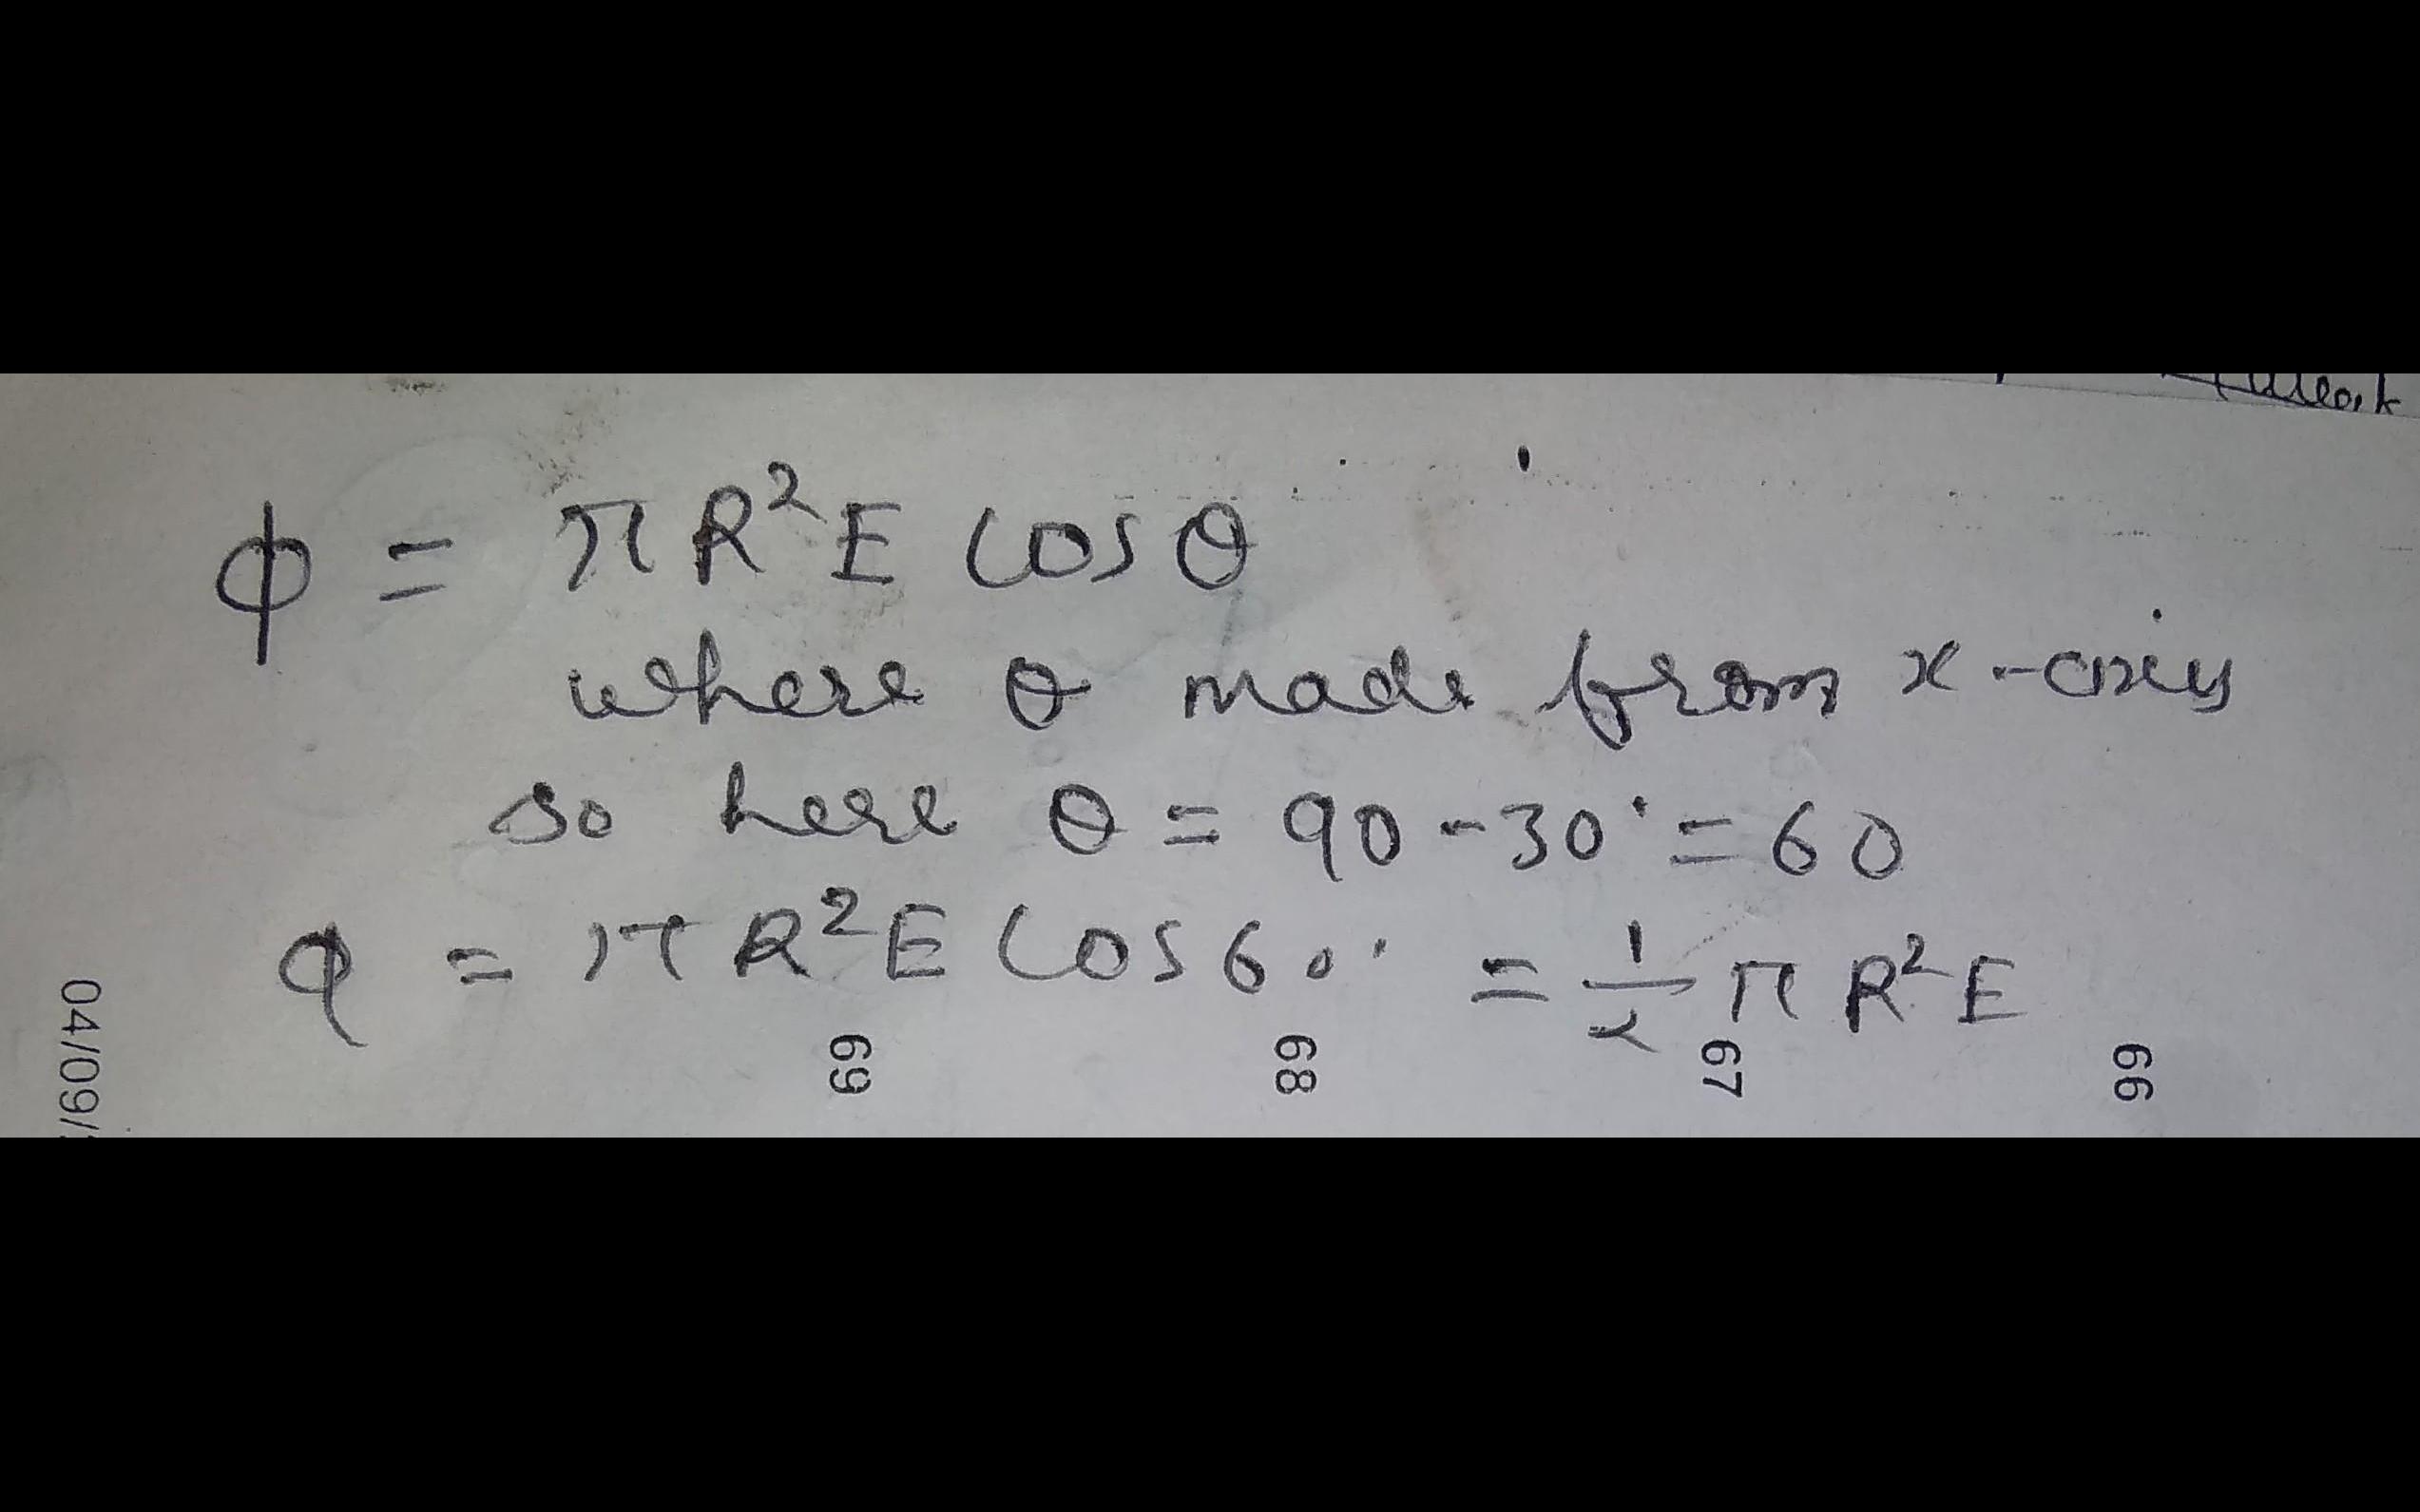 ϕ = π R²E cosθ
where θ made from x-axis
so here θ = 90 - 30° = 60
φ = π R²E cos60° = 1/2 π R²E
04/09/
69
68
67
66